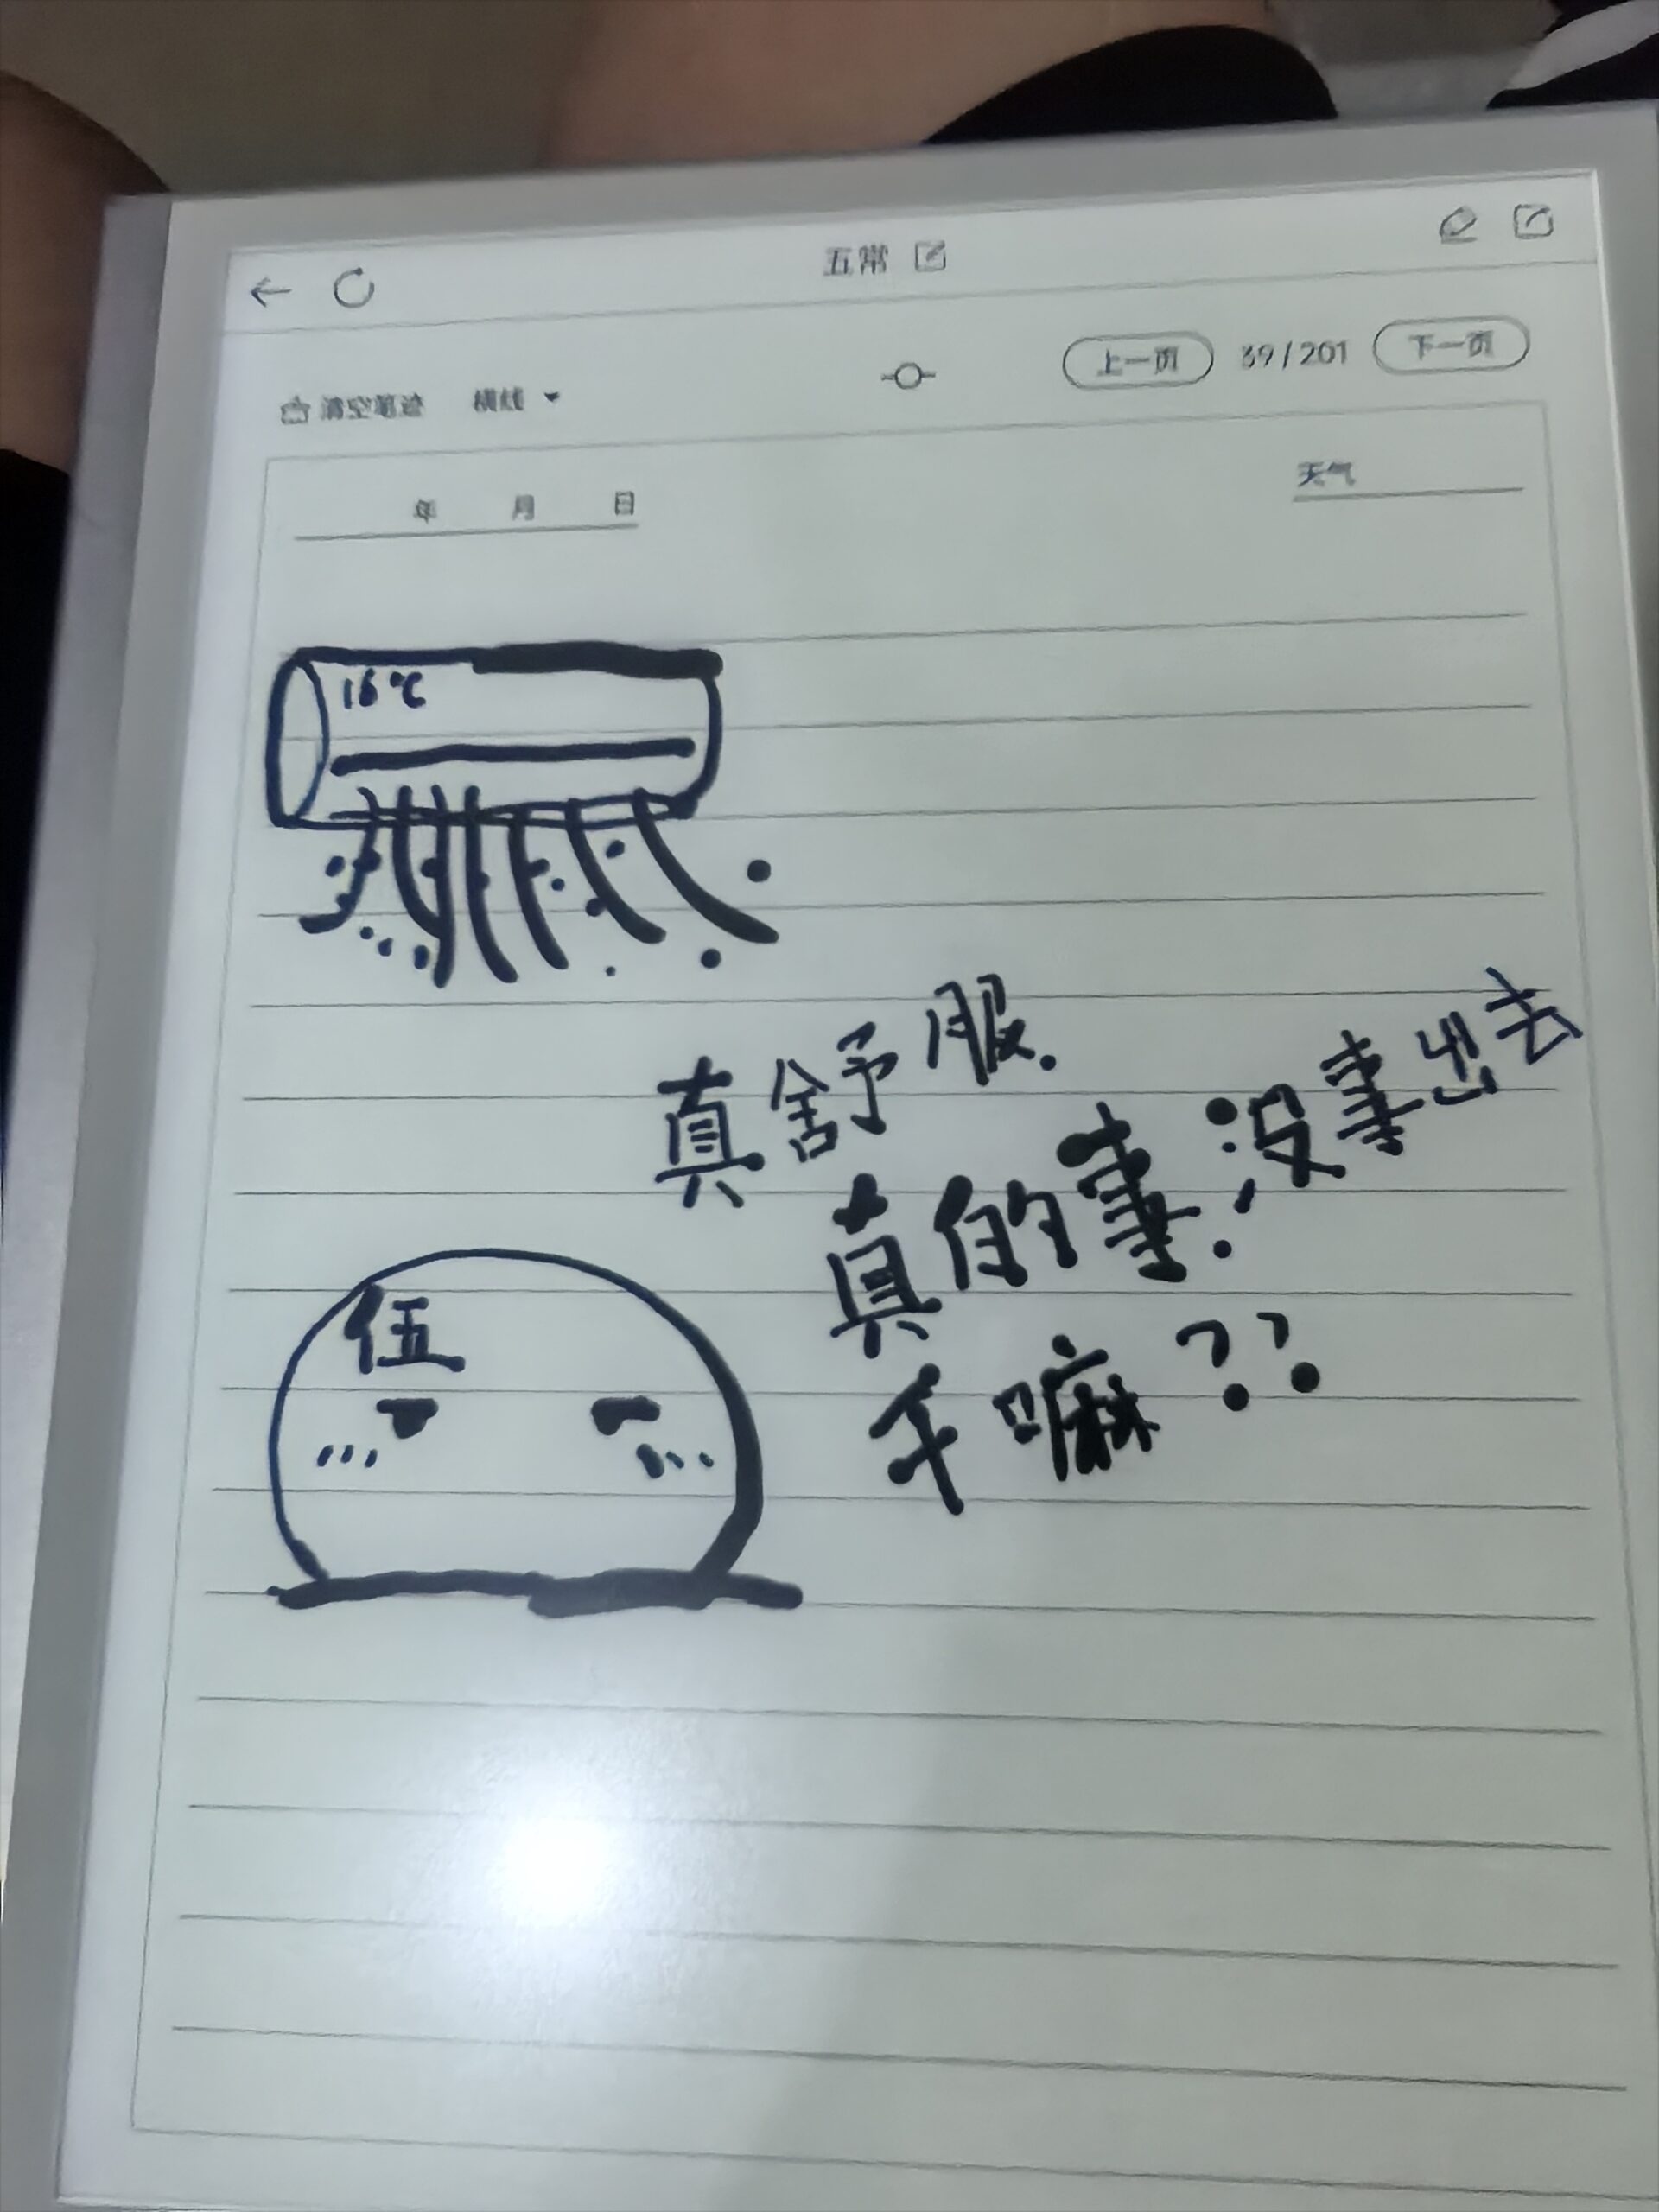 五常
上一页 39/201 下一页
清空笔迹 横线
年 月 日
天气
16℃
真舒服.
没事出去
真的
伍
嘛??